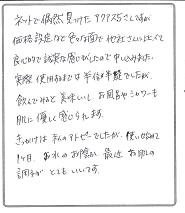 ネットで偶然見つけたアクアス5さんですが
価格設定など色々な面で他社さんに比べて
良心的で誠実な感じがしたので申し込みました。
実際使用するまでは半信半疑でしたが、
飲んでみると美味しいし、お風呂やシャワーも
肌に優しく感じられます。
きっかけは私のアトピーでしたが、使い始めて
1ヶ月、お水のお陰か最近お肌の
調子がとてもいいです。